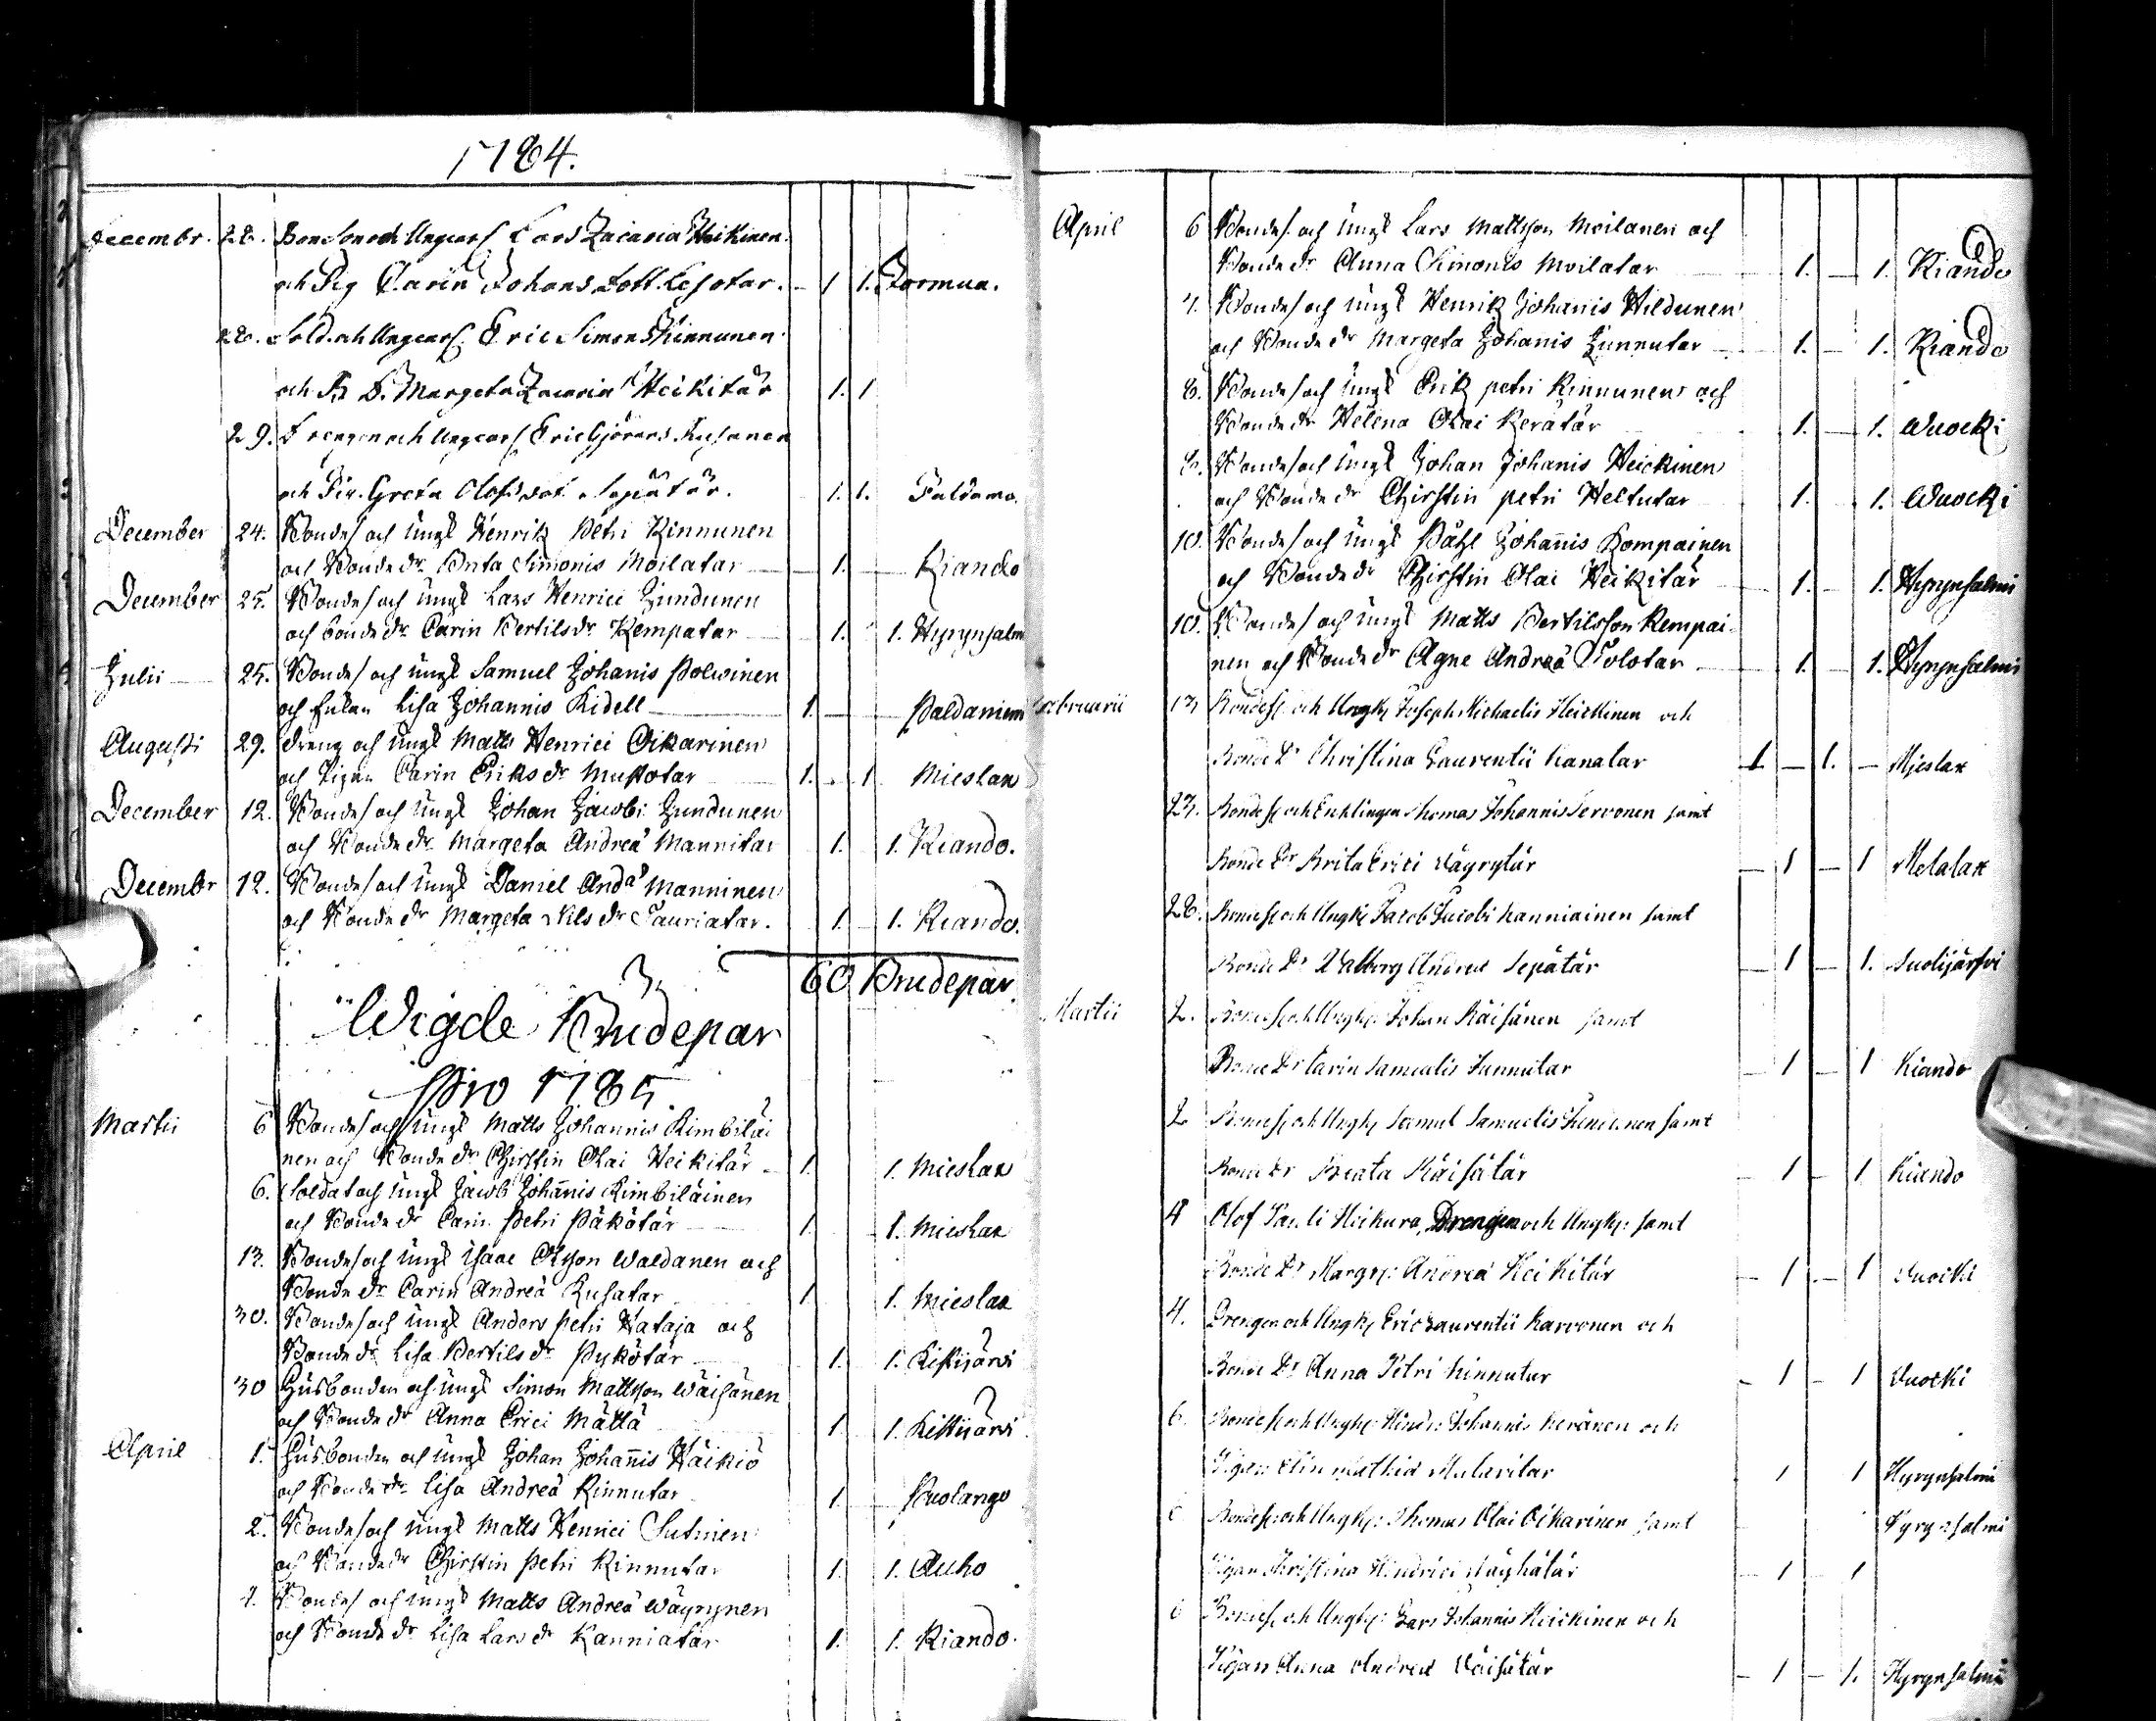 1784.
Decembr. 28. Bon Son och Ungcarl Lars Zacaria Heikinen.
och Pig Carin Johans dott. Kesotar. - 1 1. Jormua.
28. Sold. och Ungcarl. Eric Simons Kinnunen
och B. D. Margeta Zacaria Heikitär 1. 1
29. Drengen och Ungcarl Eric Görans
och Pig. Greta Olofs dot. Sepätär. 1. 1. Paldamo.
December 24. Bondes och Ungk Henrik Petri Kinnunen
och Bonde dr Brita Simonis Moilatar 1. Kiando
December 25. Bondes och Ungk Lars Henrici Jundunen
och bonde dr Carin Bertils dr Kempatar 1. 1. Hyrynsalm
Julii 25. Bondes och Ungk Samuel Johanis Polwinen
och Enkan Lisa Johannis Kidell 1. Paldaniem
Augusti 29. Dreng och Ungk Matts Henrici Oikarinen
och Pigan Carin Eriks dr Mustotar 1. 1 Mieslax
December 12. Bondes och Ungk Johan Jacobi Jundunen
och Bonde dr Margeta Andreæ Mannitar 1. 1. Kiando.
Decembr 12. Bondes och Ungk Daniel And Manninen
och Bonde dr Margeta Nils dr Tauriatar. 1. 1. Kiando.
60 Brudepar
Wigde Brudepar
Pro 1785
Martii 6 Bondes och Ungk Matts Johannis Kimbiläi
nen och Bonde dr Chirstin Olai Heikitär 1. 1. Mieslax
6. Soldat och Ungk Jacob Johannis Kimbiläinen
och Bonde dr Carin Petri Päkötär 1. 1. Mieslax
13. Bondes och Ungk Isaac Olsson Waldanen och
Bonde dr Carin Andreæ Kusatar 1 1. Mieslax
30. Bondes och Ungk Anders Petri Hataja och
Bonde dr Lisa Bertils dr Pykötär 1. 1. Ristijärvi
30 Husbonden och Ungk Simon Mattsson Wäisänen
och Bonde dr Anna Erici Mättä 1. 1. Ristijärvi
April 1. Husbonden och Ungk Johan Johannis Häikiö
och Bonde dr Lisa Andreæ Kinnutar 1. Puolango
2. Bondes och Ungk Matts Henrici Sutinen
och Bonde dr Chirstin Petri Kinnutar 1. 1. Auho
4. Bondes och Ungk Matts Andreæ Wäyrynen
och Bonde dr Lisa Lars dr Kanniatar 1. 1. Kiando.
April 6 Bondes och Ungk Lars Mattsson Moilanen och
Bonde dr Anna Simonis Moilatar 1. 1. Kiando
7. Bondes och Ungk Henrik Johanis Hildunen
och Bonde dr Margeta Johanis Junnutar 1. 1. Kiando
8. Bondes och Ungk Erik Petri Kinnunen och
Bonde dr Helena Olai Kerätär 1. 1. Wuocki
8. Bondes och Ungk Johan Johanis Heickinen
och Bonde dr Chirstin Petri Heltutar 1. 1. Wuocki
10. Bondes och Ungk Påhl Johannis Kompainen
och Bonde dr Chirstin Olai Heikitär 1. 1. Hyrynsalmi
10. Bondes och Ungk Matts Bertilsson Kempai-
nen och Bonde dr Agne Andreæ Polotar 1. 1. Hyrynsalmi
Februarii 13 Bondes. och Ungk. Joseph Michaelis Heickinen och
Bonde Dr Christina Laurentii Kanatar 1 1. Mjeslax
23. Bondes. och Enklingen Thomas Johannis Servonen samt
Bonde Dr Brita Erici Väyrytär 1 1 Melalax
28. Bondes. och Ungk. Jacob Jacobi Kanniainen samt
Bonde Dr Valborg Andreæ Sepätär 1 1. Suolijärfvi
Martii 2. Bondes. och Ungk. Johan Räisänen samt
Bonde Dr Carin Samuelis Junnutar 1 1 Kiando
2 Bondes. och Ungk. Samuel Samuelis samt
Bonde Dr Beata Räisätär 1 1 Kiando
4 Olof Pauli Heikura, Drengen och Ungk. samt
Bonde Dr Margr. Andreæ Heikitär 1 1 Vuocki
4. Drengen och Ungk. Eric Laurentii Karvonen och
Bonde Dr Anna Petri Kinnutar 1 1 Vuocki
6. Bondes. och Ungk. Hindr. Johannis Keränen och
Pigan Elin Mathiæ Mularitar 1 1 Hyrynsalmi
6 Bondes. och Ungk. Thomas Olai Oikarinen samt Hyrynsalmi
Pigan Christina Hindrici 1 1
6 Bondes. och Ungk. Lars Johannis Heickinen och
Pigan Anna Andreæ Väisätär 1 1. Hyrynsalmi